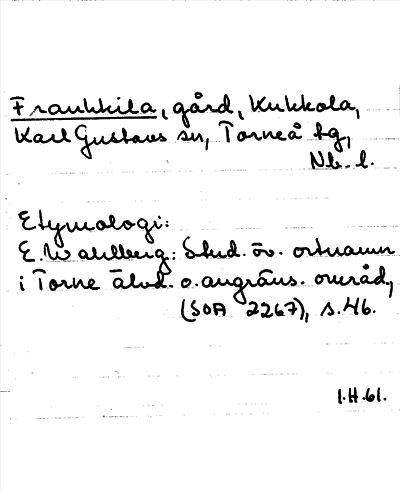 Frankkila, gård, Kukkola,
Karl Gustavs sn, Torneå tg,
Nb. l.
Etymologi:
E. Wahlberg: Stud. öv. ortnamn
i Torne älvd. o. angräns. områd,
(SOA 2267), s. 46.
1.H.61.